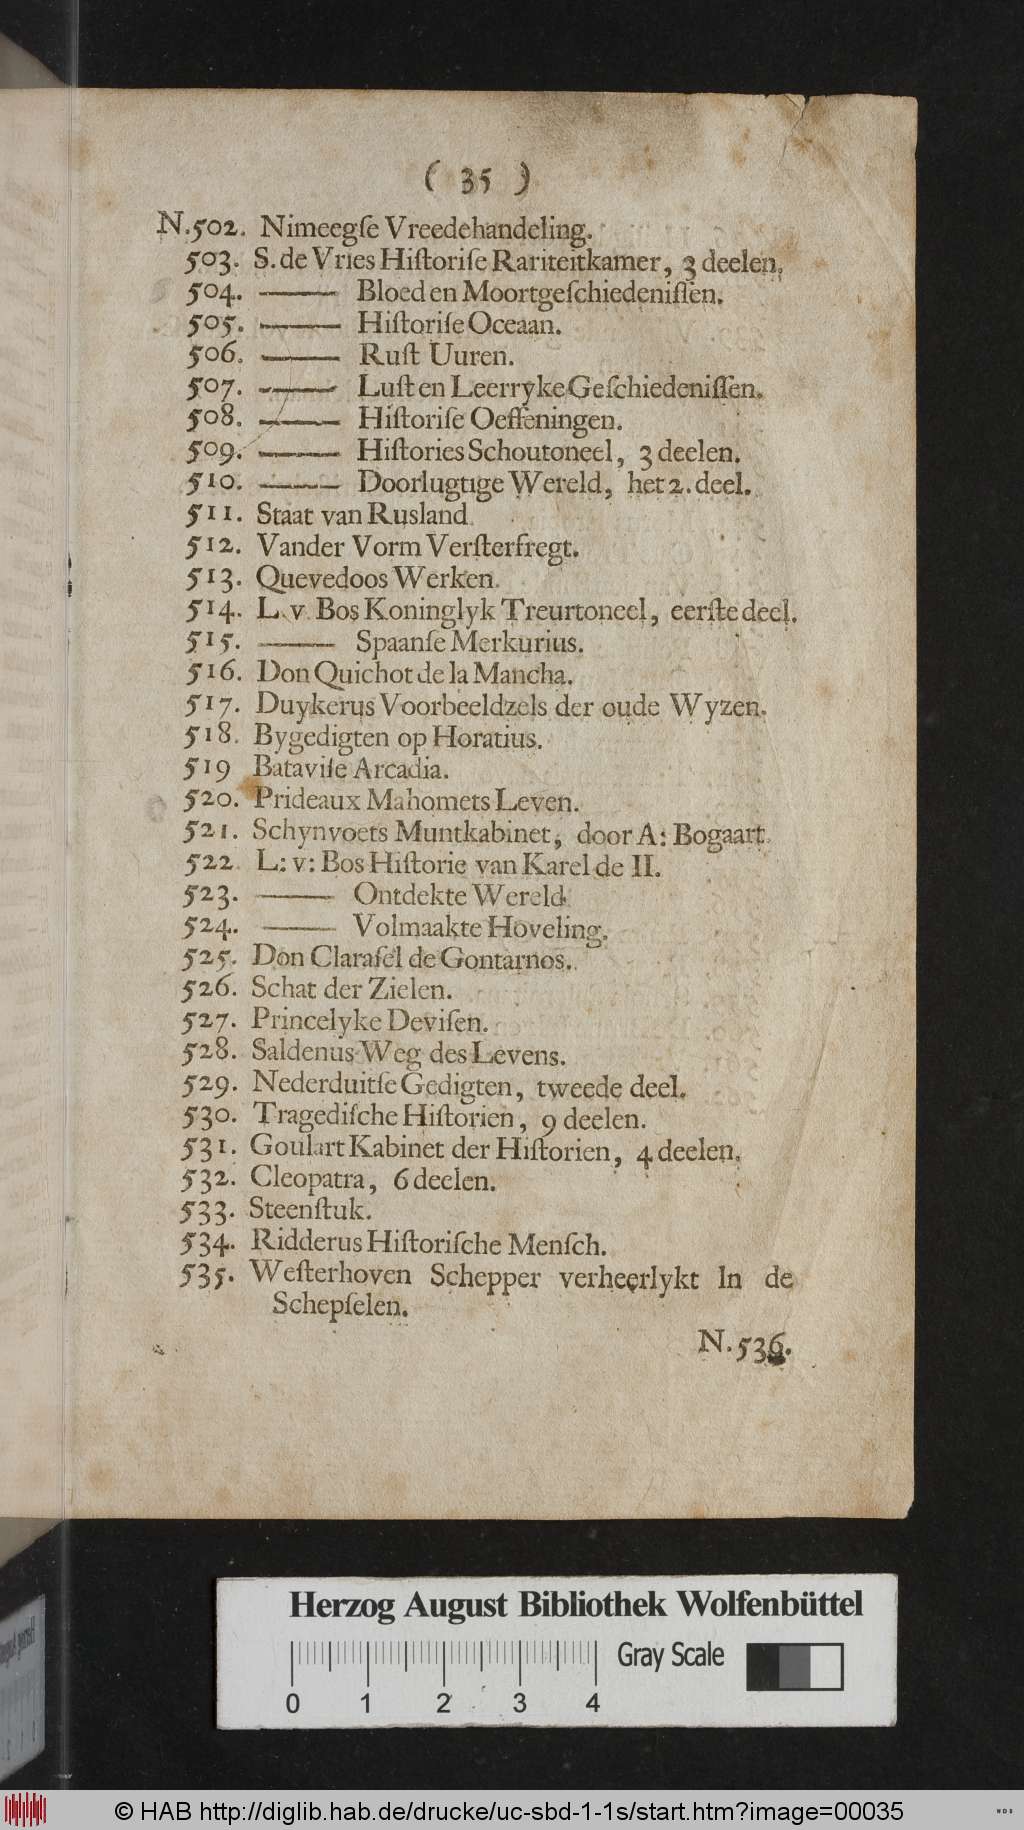 ( 35 )
N.502. Nimeegſe Vreedehandeling.
503. S. de Vries Hiſtoriſe Rariteitkamer, 3 deelen.
504. —— Bloed en Moortgeſchiedeniſſen.
505. —— Hiſtoriſe Oceaan.
506. —— Ruſt Uuren.
507. —— Luſt en Leerryke Geſchiedeniſſen.
508. —— Hiſtoriſe Oeffeningen.
509. —— Hiſtories Schoutoneel, 3 deelen.
510. —— Doorlugtige Wereld, het 2. deel.
511. Staat van Rusland.
512. Vander Vorm Verſterfregt.
513. Quevedoos Werken.
514. L. v. Bos Koninglyk Treurtoneel, eerſte deel.
515. —— Spaanſe Merkurius.
516. Don Quichot de la Mancha.
517. Duykerus Voorbeeldzels der oude Wyzen.
518. Bygedigten op Horatius.
519 Bataviſe Arcadia.
520. Prideaux Mahomets Leven.
521. Schynvoets Muntkabinet, door A: Bogaart.
522 L: v: Bos Hiſtorie van Karel de II.
523. —— Ontdekte Wereld.
524. —— Volmaakte Hoveling.
525. Don Claraſel de Gontarnos.
526. Schat der Zielen.
527. Princelyke Deviſen.
528. Saldenus Weg des Levens.
529. Nederduitſe Gedigten, tweede deel.
530. Tragediſche Hiſtorien, 9 deelen.
531. Goulart Kabinet der Hiſtorien, 4 deelen.
532. Cleopatra, 6 deelen.
533. Steenſtuk.
534. Ridderus Hiſtoriſche Menſch.
535. Weſterhoven Schepper verheerlykt in de
Schepſelen.
N.536.
Herzog August Bibliothek Wolfenbüttel
Gray Scale
0 1 2 3 4
© HAB http://diglib.hab.de/drucke/uc-sbd-1-1s/start.htm?image=00035